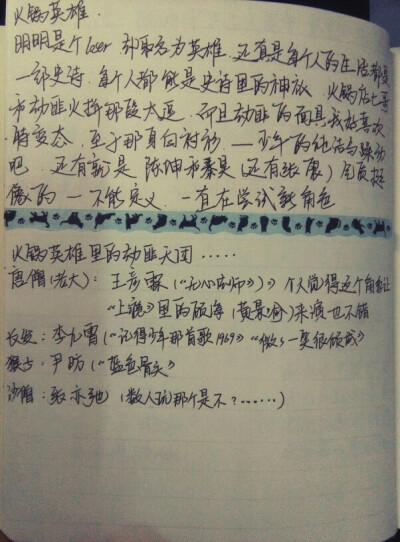 火锅英雄.
明明是个loser 却取名为英雄. 还真是每个人的生活都是
一部史诗. 每个人都能是史诗里的神放. 火锅店七哥
和劫匪火拼那段太逗. 而且劫匪的面具我好喜欢
特变态. 至于那身白衬衫. — 少年的纯洁与躁动
吧. 还有就是 陈坤和秦昊 (还有张震) 包员挺
像的 — 不能定义. 一直在尝试新角色
火锅英雄里的劫匪天团 ……
唐僧(老大): 王彦霖 (《无心法师》) 个人觉得这个角色让
"上瘾" 里的顾海 (黄景瑜) 来演也不错
长短: 李九霄 (《记得少年那首歌1969》 "微微一笑很倾城"
猴子: 尹昉 《蓝色骨头》
沙僧: 张亦驰 (数人玩那个是不? ……)